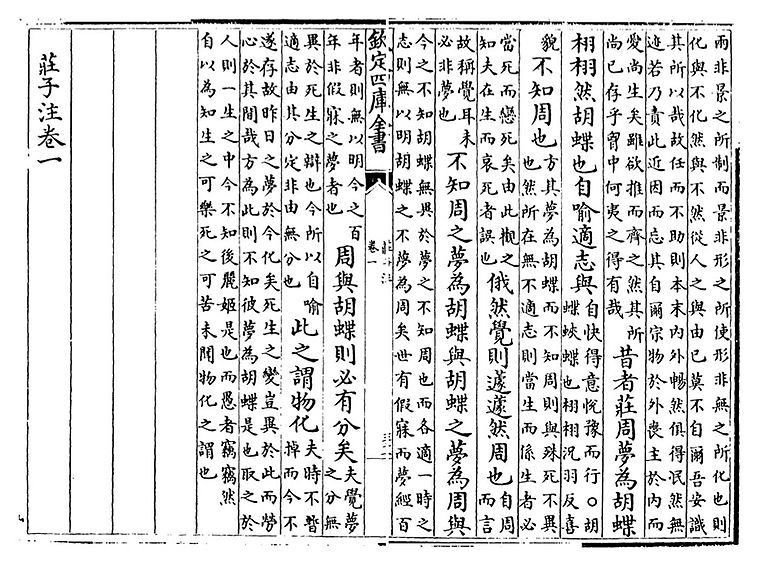 兩非景之所制而景非形之所使形非無之所化也則
化與不化然與不然從人之與由已莫不自爾吾安識
其所以哉故任而不助則本末內外暢然俱得泯然無
迹若乃責此近因而忘其自爾宗物於外喪主於內而
愛尚生矣雖欲推而齊之然其所
尚已存乎胷中何夷之得有哉
昔者莊周夢為胡蝶
栩栩然胡蝶也自喻適志與
自快得意悅豫而行○胡
蝶蛺蝶也栩栩況羽反喜
貌
不知周也
方其夢為胡蝶而不知周則與殊死不異
也然所在無不適志則當生而係生者必
當死而戀死矣由此觀之
知夫在生而哀死者誤也
俄然覺則蘧蘧然周也
自周
而言
故稱覺耳未
必非夢也
不知周之夢為胡蝶與胡蝶之夢為周與
今之不知胡蝶無異於夢之不知周也而各適一時之
志則無以明胡蝶之不夢為周矣世有假寐而夢經百
欽定四庫全書
莊子注
卷一
年者則無以明今之百
年非假寐之夢者也
周與胡蝶則必有分矣
夫覺夢
之分無
異於死生之辯也今所以自喻
適志由其分定非由無分也
此之謂物化
夫時不暫
掉而今不
遂存故昨日之夢於今化矣死生之變豈異於此而勞
心於其間哉方為此則不知彼夢為胡蝶是也取之於
人則一生之中今不知後麗姬是也而愚者竊竊然
自以為知生之可樂死之可苦未聞物化之謂也
莊子注卷一